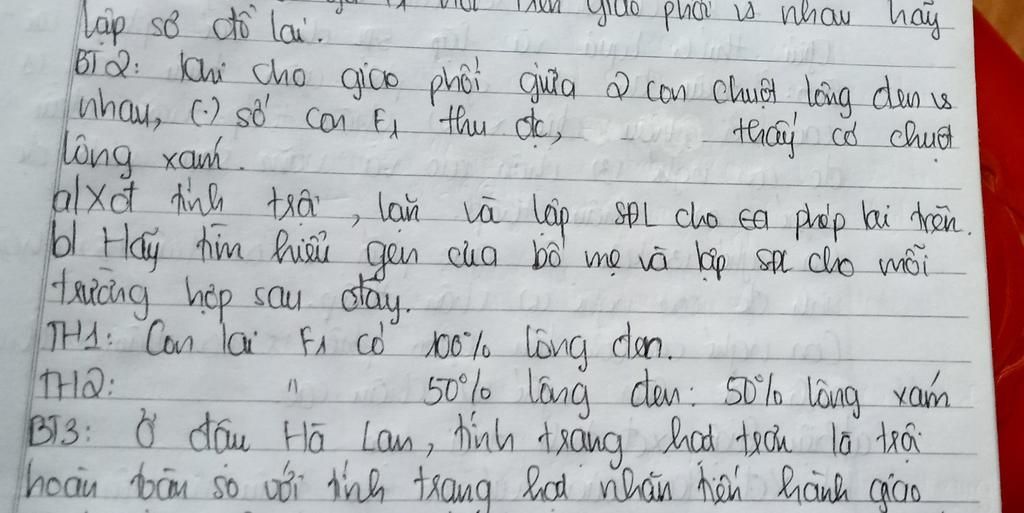 giao phối vs nhau hãy
lập sơ đồ lai.
BT2: Khi cho giao phối giữa 2 con chuột lông đen vs
nhau, (.) số con F1 thu đc, thấy có chuột
lông xám.
a/ Xđ tính trội, lặn và lập SĐL cho cả phép lai trên.
b/ Hãy tìm hiểu gen của bố mẹ và lập SĐL cho mỗi
trường hợp sau đây.
TH1: Con lai F1 có 100% lông đen.
TH2: " 50% lông đen: 50% lông xám
BT3: Ở đậu Hà Lan, tính trạng hạt trơn là trội
hoàn toàn so với tính trạng hạt nhăn tiến hành giao